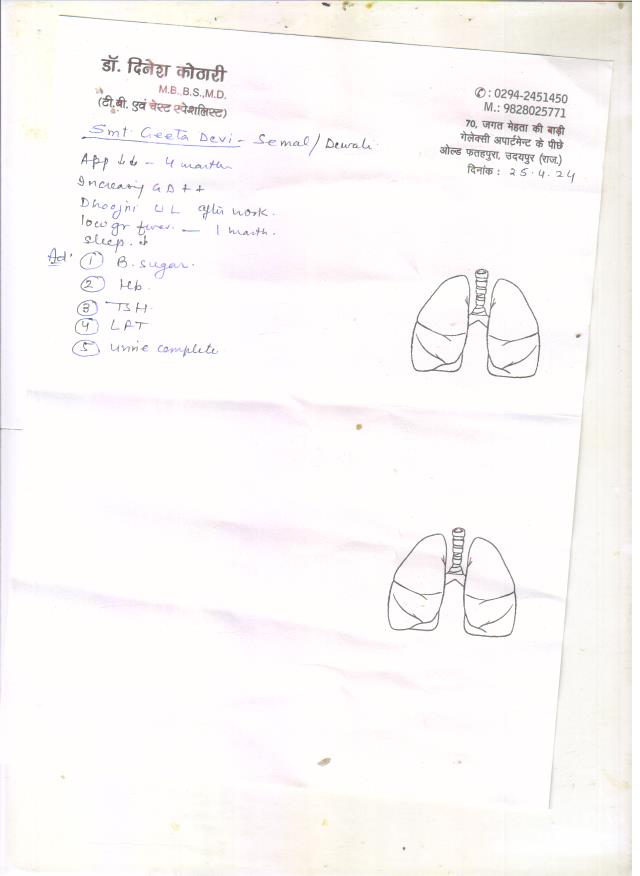 डॉ. दिनेश कोठारी
M.B.,B.S.,M.D.
(टी.बी. एवं चेस्ट स्पेशलिस्ट)
✆ : 0294-2451450
M.: 9828025771
70, जगत मेहता की बाड़ी
गेलेक्सी अपार्टमेन्ट के पीछे
ओल्ड फतहपुरा, उदयपुर (राज.)
दिनांक : 25.4.24
Smt. Geeta Devi - Semal / Dewali
App ↓↓ - 4 month
Increasing G D + +
Dhoojni U L after work.
low gr fever. — 1 month.
sleep. ↓
Ad'
① B. sugar.
② Hb.
③ TSH.
④ LFT
⑤ urine complete